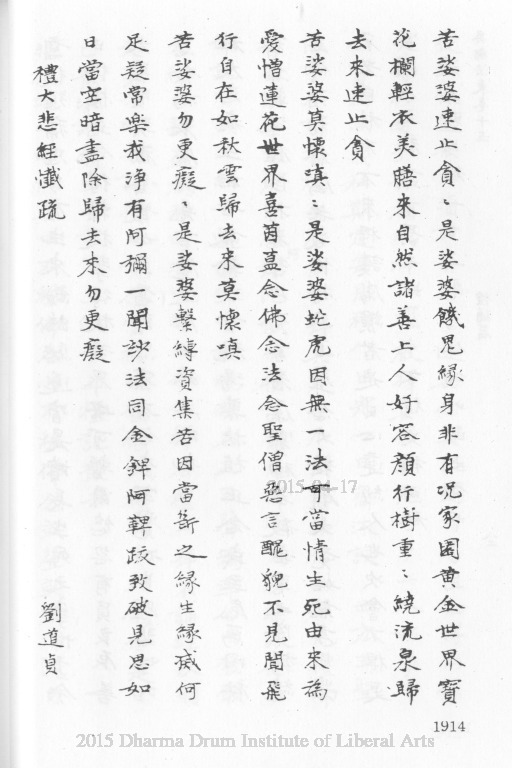 苦娑婆速止貪：是娑婆餓鬼緣身非有況家園黃金世界寶
花欄輕衣美膳來自然諸善上人好容顏行樹重：繞流泉歸
去來速止貪
苦娑婆莫懷嗔：是娑婆蛇虎因無一法可當情生死由來為
愛憎蓮花世界喜茵蓋念佛念法念聖僧惡言醜貌不見聞飛
行自在如秋雲歸去來莫懷嗔
苦娑婆勿更癡：是娑婆繫縛資集苦因當斷之緣生緣滅何
足疑常樂我淨有阿彌一聞妙法同金錍阿鞞跋致破見思如
日當空暗盡除歸去來勿更癡
禮大悲經懺疏
劉道貞
1914
2015-04-17
2015 Dharma Drum Institute of Liberal Arts